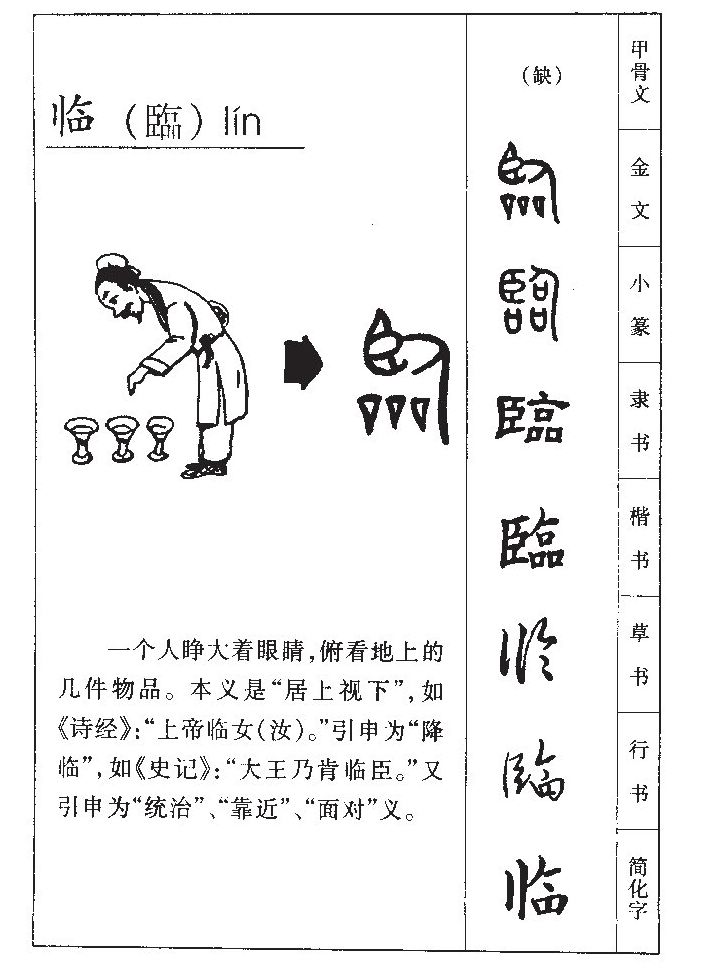 临（臨）lín
一个人睁大着眼睛，俯看地上的
几件物品。本义是“居上视下”，如
《诗经》：“上帝临女（汝）。”引申为“降
临”，如《史记》：“大王乃肯临臣。”又
引申为“统治”、“靠近”、“面对”义。
（缺） 甲骨文
臨 金文
臨 小篆
臨 隶书
臨 楷书
临 草书
臨 行书
临 简化字